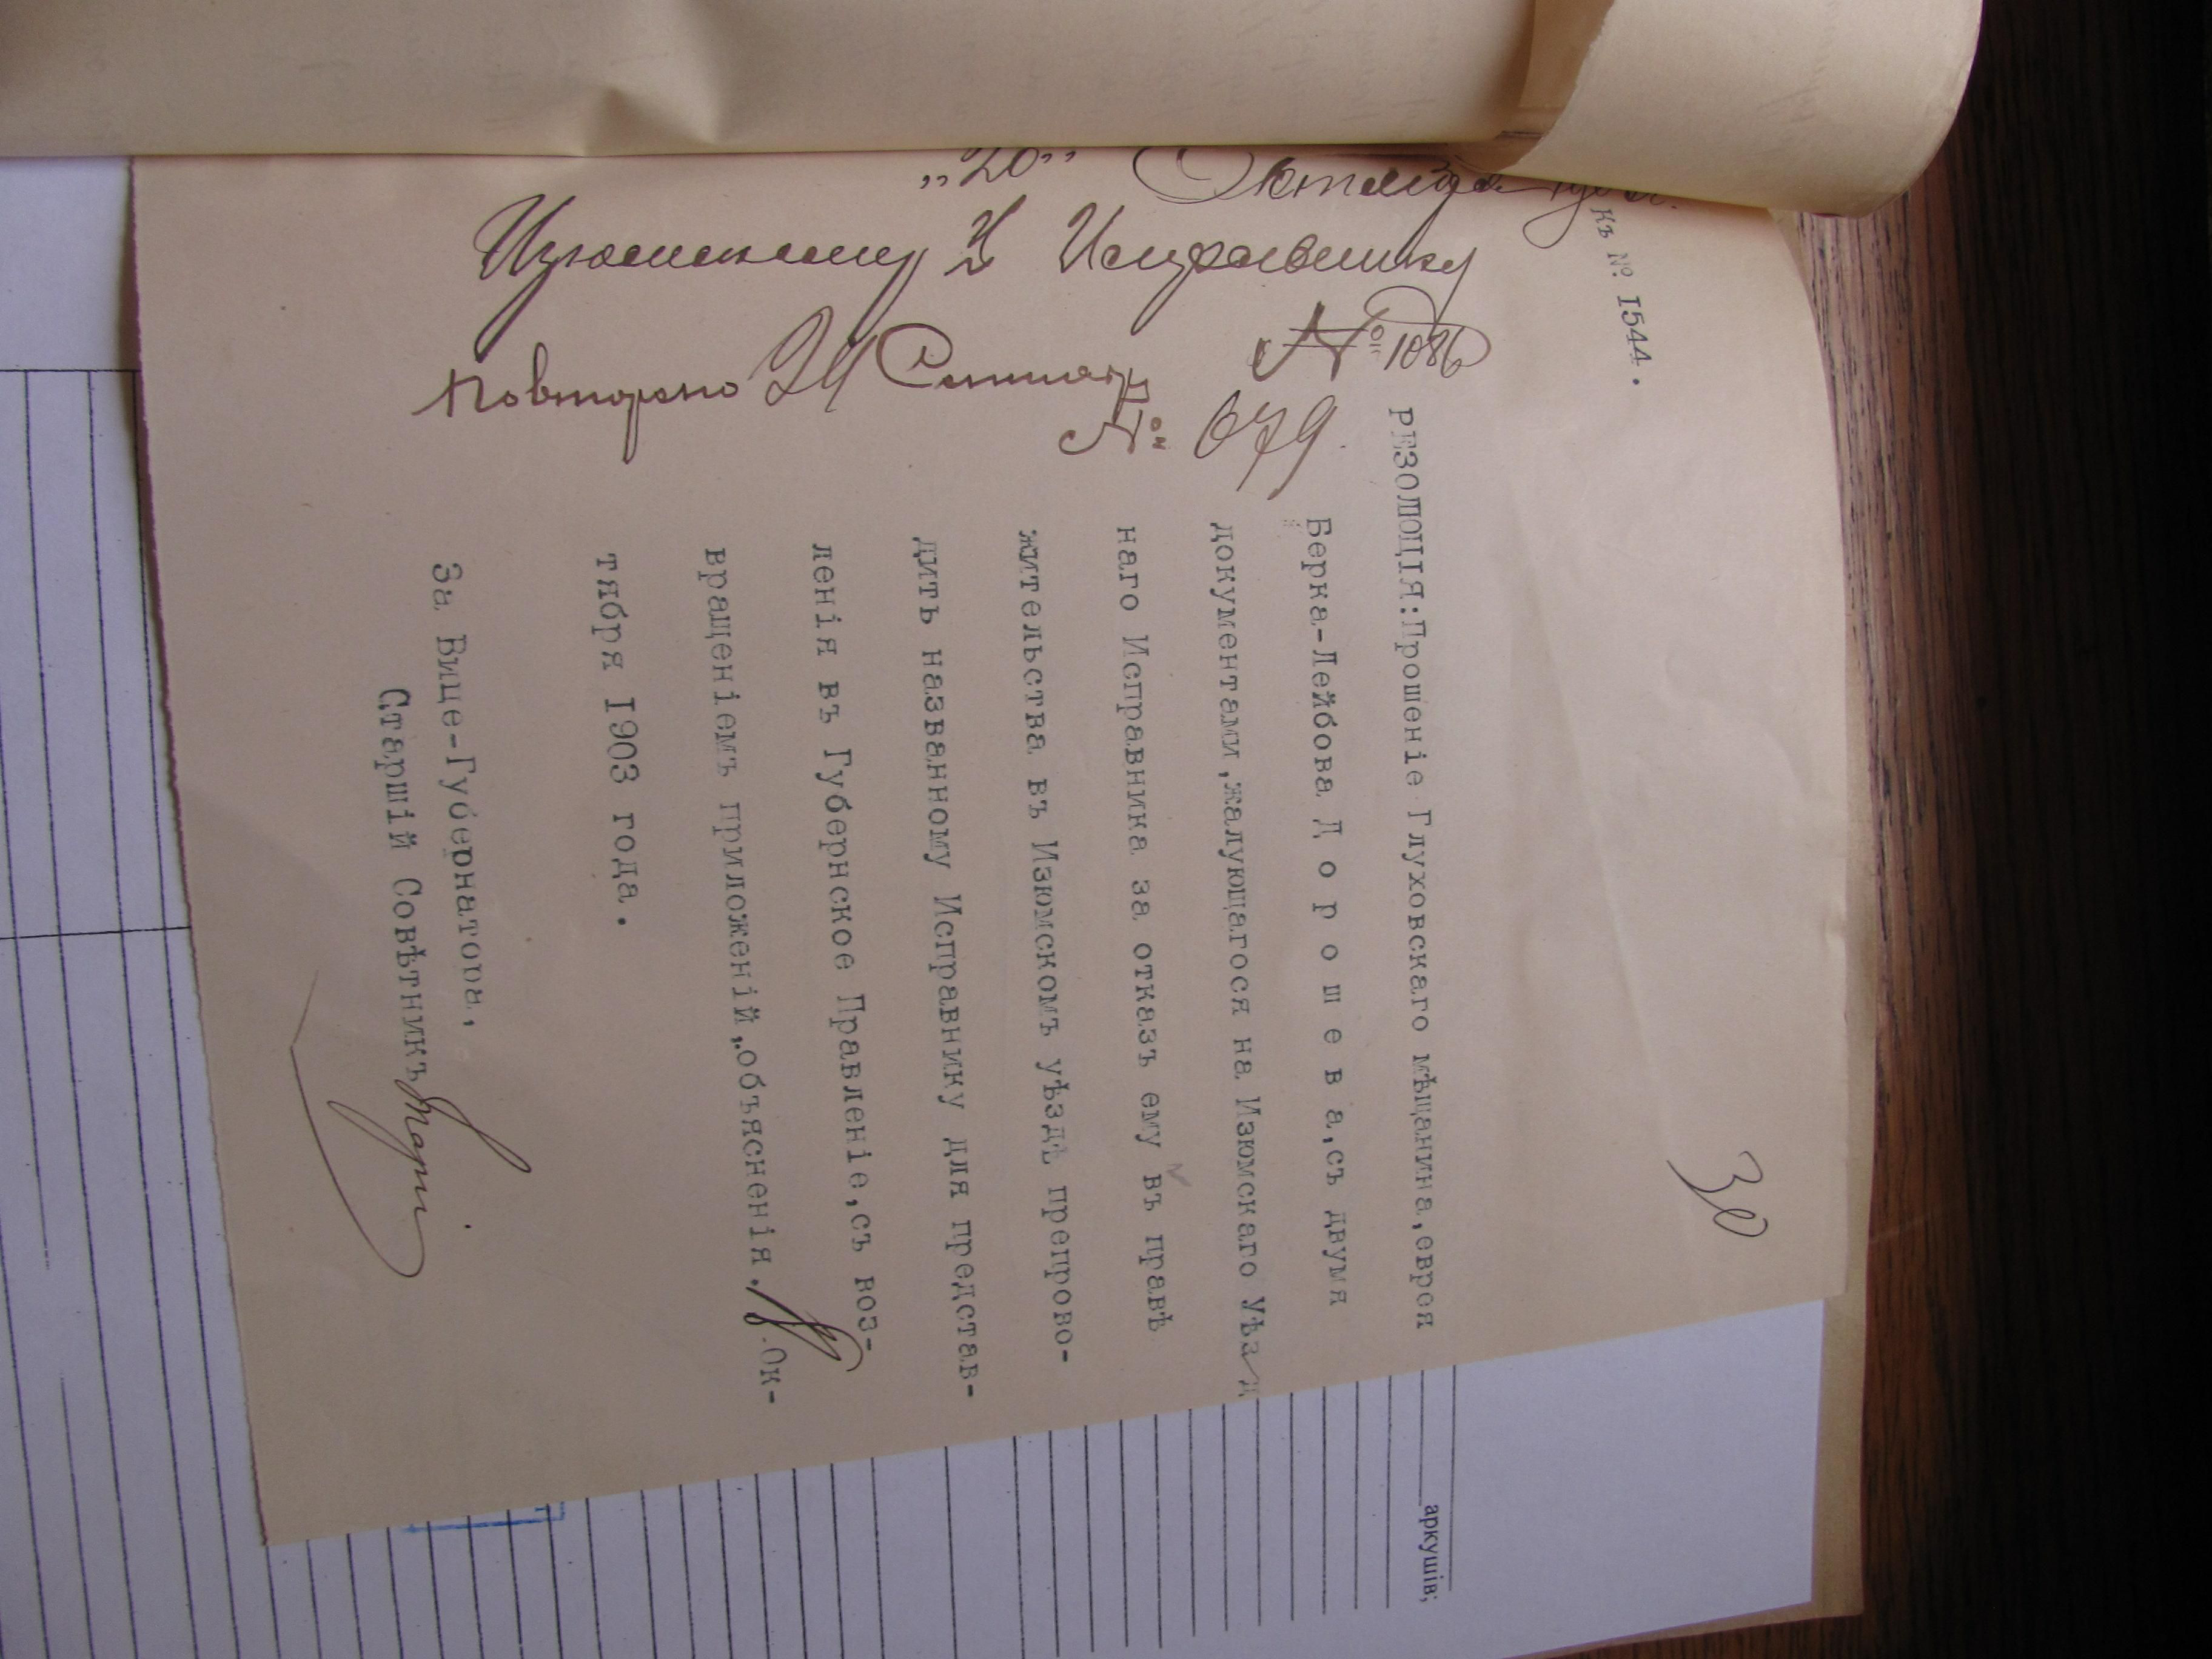 къ № I544.
30
РЕЗОЛЮЦІЯ:Прошеніе Глуховскаго мѣщанина,еврея
Берка-Лейбова Д о р о ш е в а,съ двумя
документами,жалующагося на Изюмскаго Уѣзд
наго Исправника за отказъ ему въ правѣ
жительства въ Изюмскомъ уѣздѣ препрово-
дить названному Исправнику для представ-
ленія въ Губернское Правленіе,съ воз-
вращеніемъ приложеній,объясненія. Ок-
тября I903 года.
За Вице-Губернатора,
Старшій Совѣтникъ
„20” Октября
Изюмскому У Исправнику
№ 1086
Повторено 24
№ 679
аркушів;